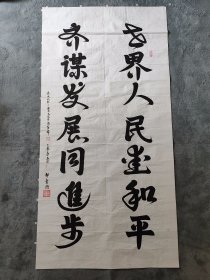 世界人民爱和平
齐谋发展同進步